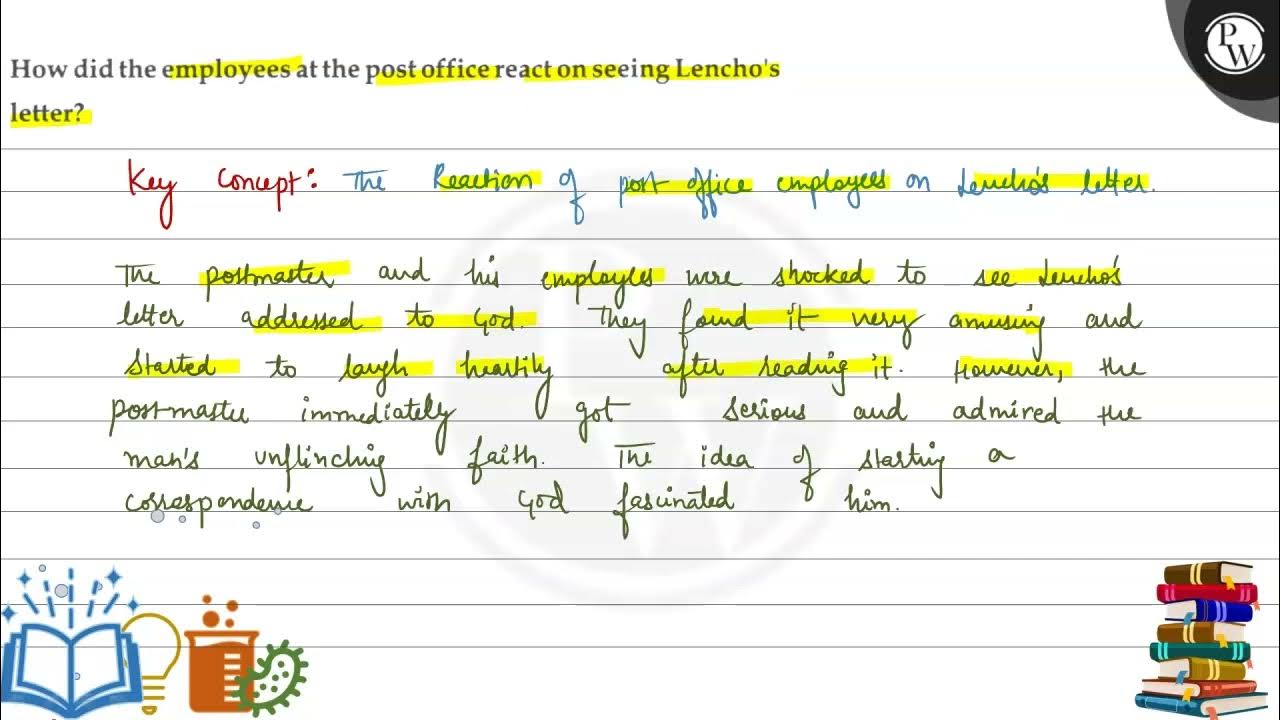 How did the employees at the post office react on seeing Lencho's
letter?
PW
Key Concept: The Reaction of post office employees on Lencho's letter.
The postmaster and his employees were shocked to see Lencho's
letter addressed to God. They found it very amusing and
started to laugh heartily after reading it. However, the
postmaster immediately got serious and admired the
man's unflinching faith. The idea of starting a
correspondence with God fascinated him.